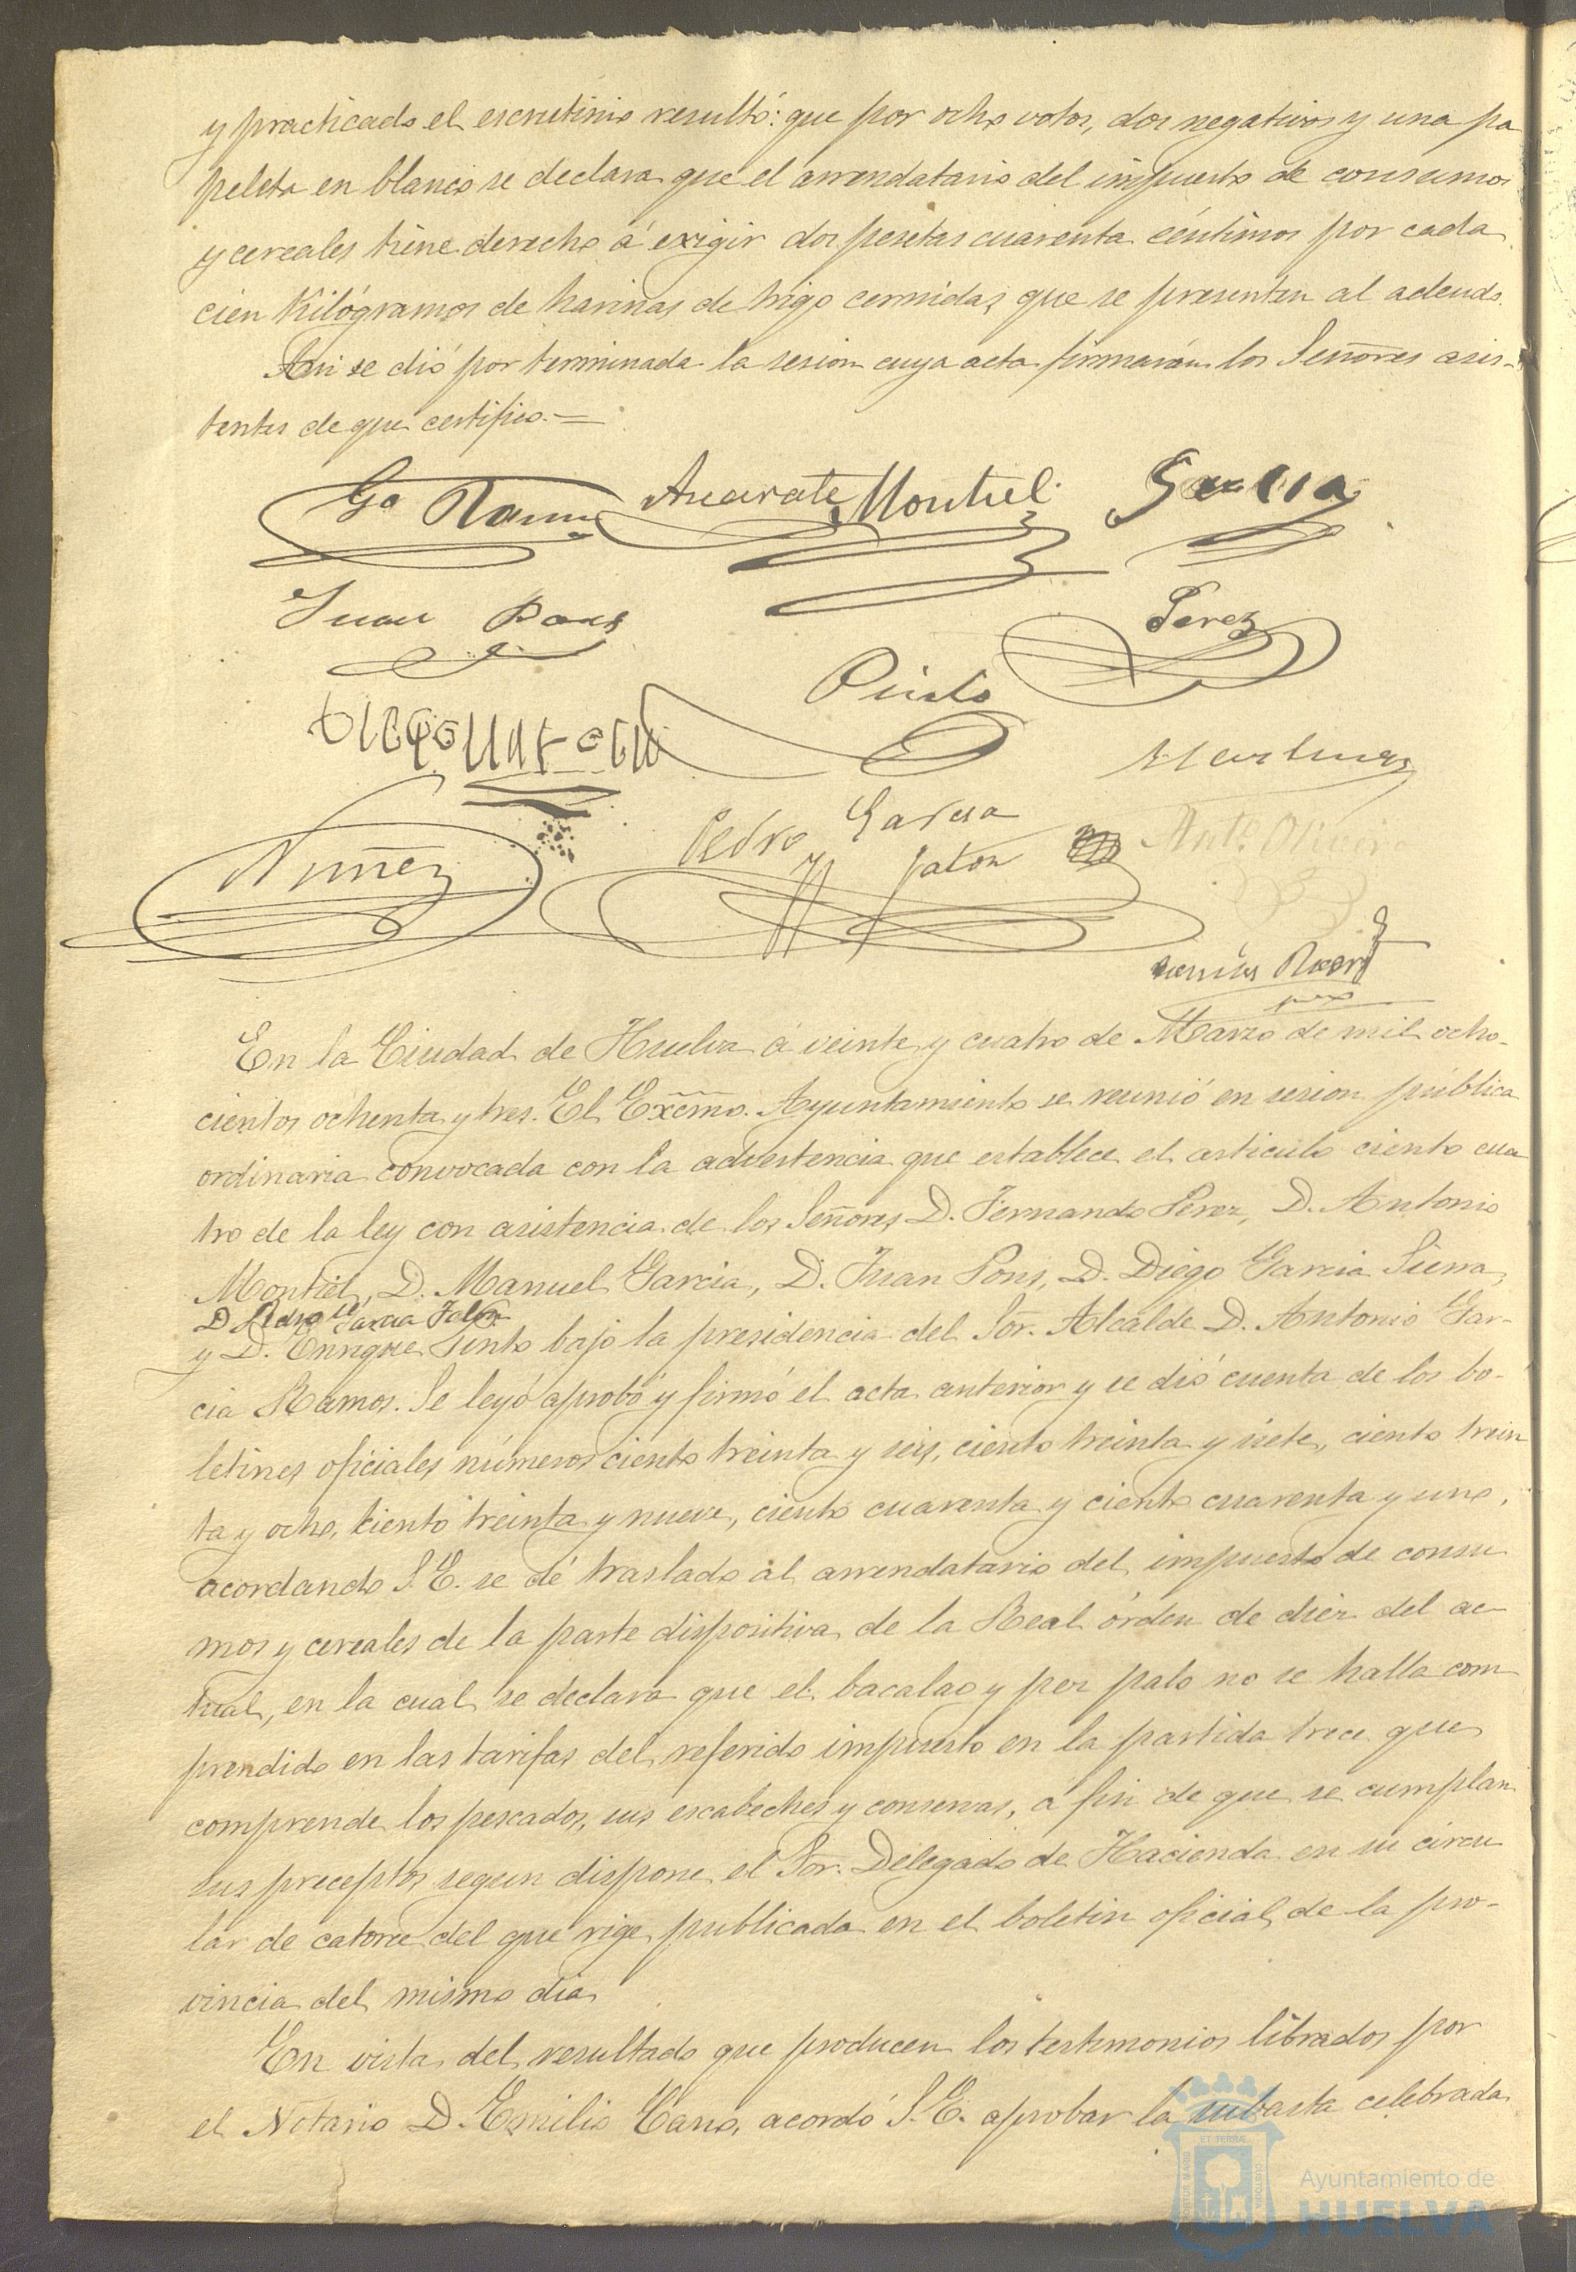 y practicado el escrutinio resultó: que por ocho votos, dos negativos y una pa
peleta en blanco se declara que el arrendatario del impuesto de consumos
y cereales tiene derecho á exigir dos pesetas cuarenta céntimos por cada
cien Kilógramos de harinas de trigo cernidas que se presenten al adeudo.
Asi se dió por terminada la sesion cuya acta firmarán los Señores asis-
tentes de que certifico.=
Ga Ramos Azcarate Montiel Garcia
Juan Pons Perez
Pinto
Martinez
Pedro Garcia
Nuñez Jalon Ant. Oliveira
En la Ciudad de Huelva á veinte y cuatro de Marzo de mil ocho-
cientos ochenta y tres. El Excmo. Ayuntamiento se reunió en sesion pública
ordinaria convocada con la advertencia que establece el articulo ciento cua
tro de la ley con asistencia de los Señores D. Fernando Perez, D. Antonio
Montiel, D. Manuel Garcia, D. Juan Pons, D. Diego Garcia Sierra,
D Pedro Garcia Jalon
y D. Enrique Pinto bajo la presidencia del Sor. Alcalde D. Antonio Gar-
cia Ramos. Se leyó aprobó y firmó el acta anterior y se dió cuenta de los bo-
letines oficiales números ciento treinta y seis, ciento treinta y siete, ciento trein
ta y ocho, ciento treinta y nueve, ciento cuarenta y ciento cuarenta y uno,
acordando S. E. se dé traslado al arrendatario del impuesto de consu
mos y cereales de la parte dispositiva de la Real órden de diez del ac-
tual, en la cual se declara que el bacalao y pez palo no se halla com
prendido en las tarifas del referido impuesto en la partida trece que
comprende los pescados, sus escabeches y conservas, á fin de que se cumplan
sus preceptos segun dispone el Sor. Delegado de Hacienda en su circu
lar de catorce del que rige publicada en el boletin oficial de la pro-
vincia del mismo dia
En vista del resultado que producen los testimonios librados por
el Notario D. Emilio Cano, acordó S. E. aprobar la subasta celebrada
Ayuntamiento de
HUELVA